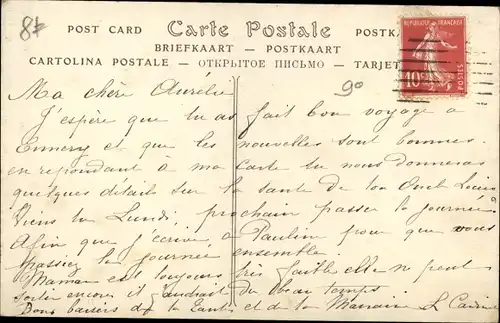 87
POST CARD Carte Postale POSTKA
BRIEFKAART — POSTKAART
CARTOLINA POSTALE — ОТКРЫТОЕ ПИСЬМО — TARJET
REPUBLIQUE FRANÇAISE
10c
POSTES
90
Ma chère Aurélie
J'espère que tu as fait bon voyage a
Ennery et que les nouvelles sont bonnes.
en repondant à ma carte tu nous donneras
quelques détails sur la santé de ton Oncle Louis
Viens tu Lundi, prochain passer la journée
Afin que j'écrive à Pauline pour que vous
passiez la journée ensemble.
Maman est toujours très faible elle ne peut
sortir encore il faudrait du beau temps
Bons baisers de la Tante et de la Marraine L